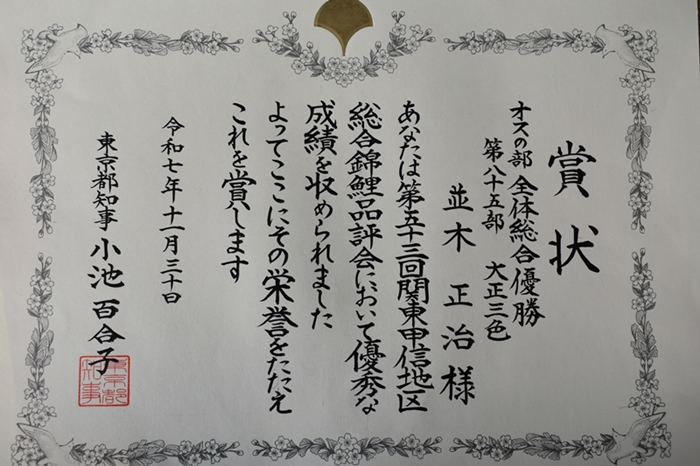 賞状
オスの部 全体総合優勝
第八十五部 大正三色
並木正治様
あなたは第五十三回関東甲信地区
総合錦鯉品評会において優秀な
成績を収められました
よってここにその栄誉をたたえ
これを賞します
令和七年十一月三十日
東京都知事 小池百合子
東京都
知事